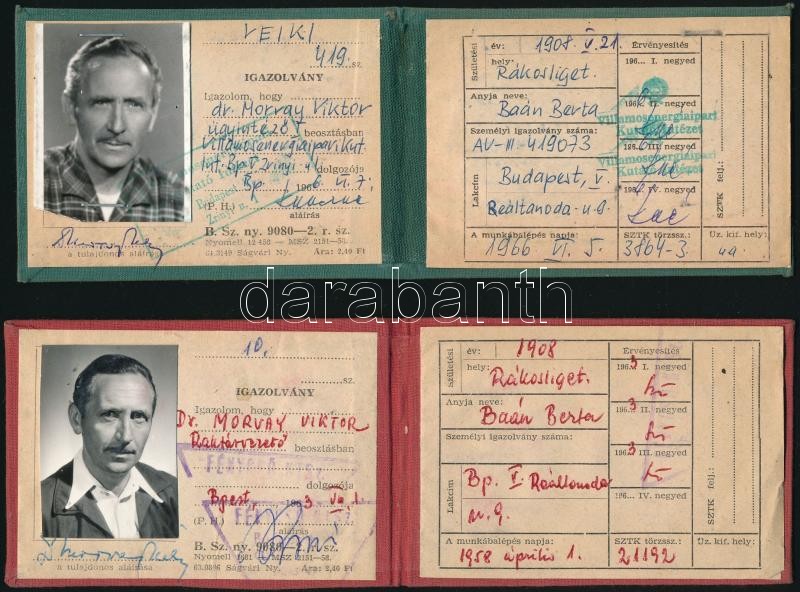 VEIKI
419. sz.
IGAZOLVÁNY
Igazolom, hogy
dr. Morvay Viktor
ügyintéző beosztásban
Villamosenergiaipari Kut.
Int. Bp. V. Zrínyi u. 1. dolgozója
Bp. 1966. VI. 7.
(P. H.)
aláírás
B. Sz. ny. 9080—2. r. sz.
a tulajdonos aláírása
Nyomell 12 458 — MSZ 2151—58.
64.3149 Ságvári Ny. Ára: 2,40 Ft
Születési
év: 1908. V. 21.
hely: Rákosliget.
Anyja neve:
Baán Berta
Személyi igazolvány száma:
AV-III. 419073
Lakcím
Budapest, V.
Reáltanoda-u. 9.
A munkábalépés napja:
1966 VI. 5.
Érvényesítés
196... I. negyed
196... II. negyed
196... III. negyed
196... IV. negyed
Villamosenergiaipari
Kutató Intézet
Villamosenergiaipari
Kutató Intézet
SZTK törzssz.:
3864-3.
SZTK felj.:
Üz. kif. hely:
ua.
darabanth
10.
sz.
IGAZOLVÁNY
Igazolom, hogy
Dr. MORVAY VIKTOR
Raktárvezető beosztásban
dolgozója
Bpest, 1963
(P. H.)
aláírás
B. Sz. ny. 9080—2. r. sz.
a tulajdonos aláírása
MSZ 2151—58.
63.0896 Ságvári Ny. Ára: 2,40 Ft
Születési
év: 1908
hely: Rákosliget.
Anyja neve:
Baán Berta
Személyi igazolvány száma:
Lakcím
Bp. V. Reáltanoda
u. 9.
A munkábalépés napja:
1958 április 1.
Érvényesítés
1963 I. negyed
1963 II. negyed
1963 III. negyed
196... IV. negyed
SZTK törzssz.:
21192
SZTK felj.:
Üz. kif. hely: